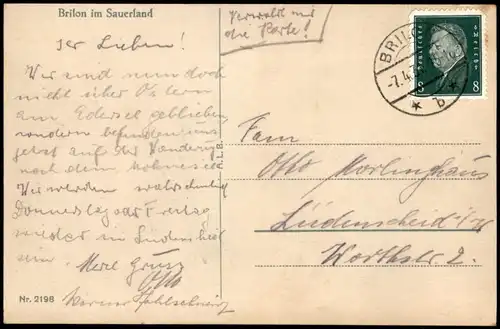 Brilon im Sauerland
Verwahrt mir
die Karte!
Ihr Lieben!
Wir sind nun doch
nicht über Ostern
am Edersee geblieben,
sondern befinden uns
jetzt auf der Wanderung
nach dem Möhnesee.
Wir werden wahrscheinlich
Donnerstag oder Freitag
wieder in Lüdenscheid
sein. Herzl. Gruss
Otto
Werner
Nr. 2198
A.L.B.
BRILON
-7.4.
* b *
8 8
Fam.
Otto Morlinghaus
Lüdenscheid i/W
Worthstr. 2.